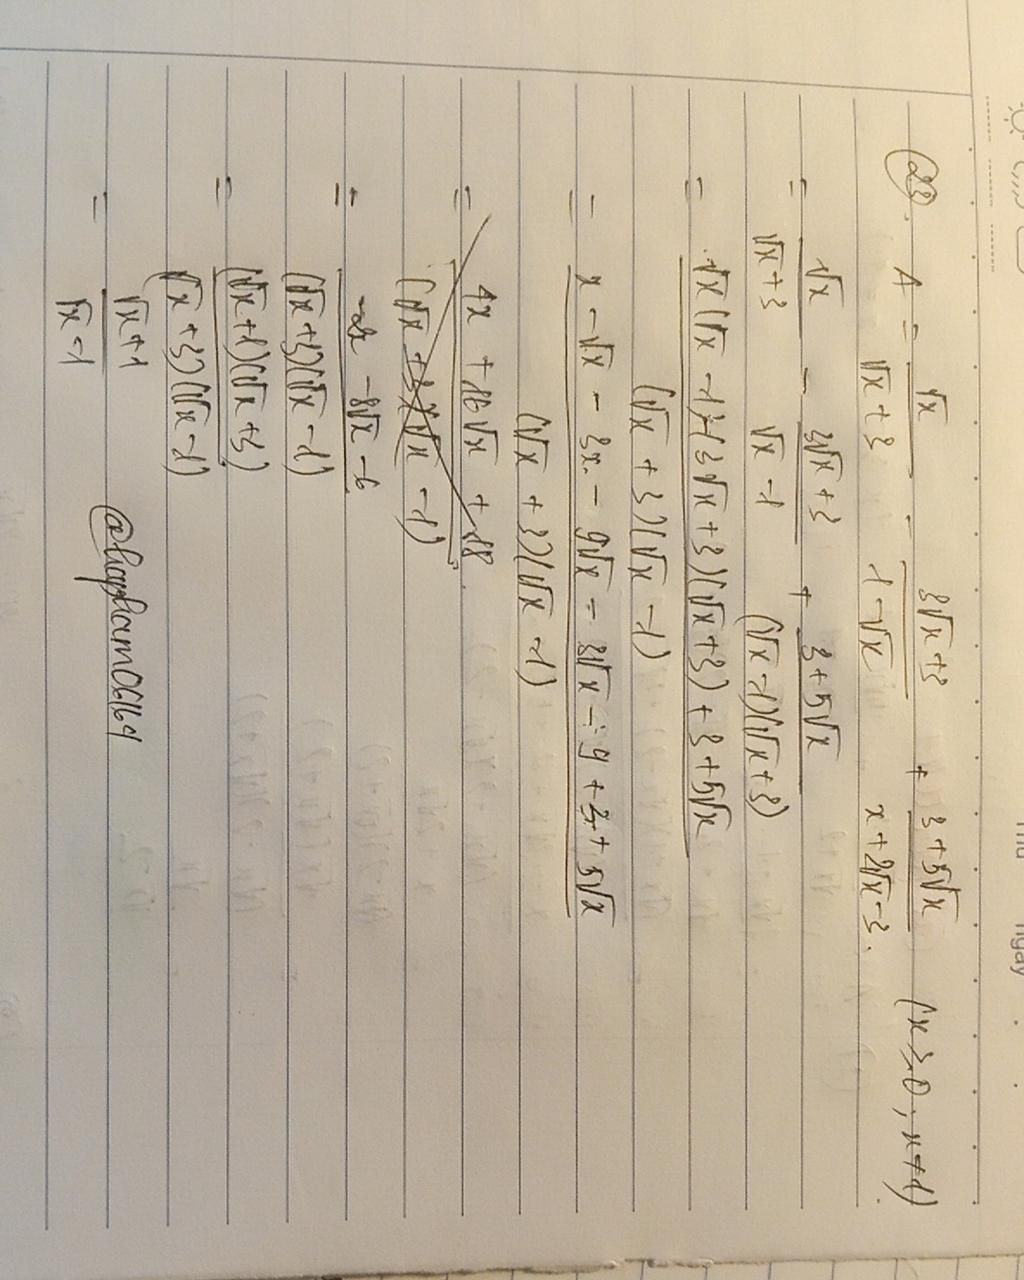 Thứ ngày
(23). A = √x/(√x + 3) - (3√x + 3)/(1 - √x) + (3 + 5√x)/(x + 2√x - 3). (x ≥ 0; x ≠ 1)
= √x/(√x + 3) - (3√x + 3)/(√x - 1) + (3 + 5√x)/((√x - 1)(√x + 3))
= (√x(√x - 1) - (3√x + 3)(√x + 3) + 3 + 5√x)/((√x + 3)(√x - 1))
= (x - √x - 3x - 9√x - 3√x - 9 + 3 + 5√x)/((√x + 3)(√x - 1))
= (4x + 16√x + 18)/((√x + 3)(√x - 1))
= (-2x - 8√x - 6)/((√x + 3)(√x - 1))
= ((√x + 1)(√x + 3))/((√x + 3)(√x - 1))
= (√x + 1)/(√x - 1)
@hapham06164